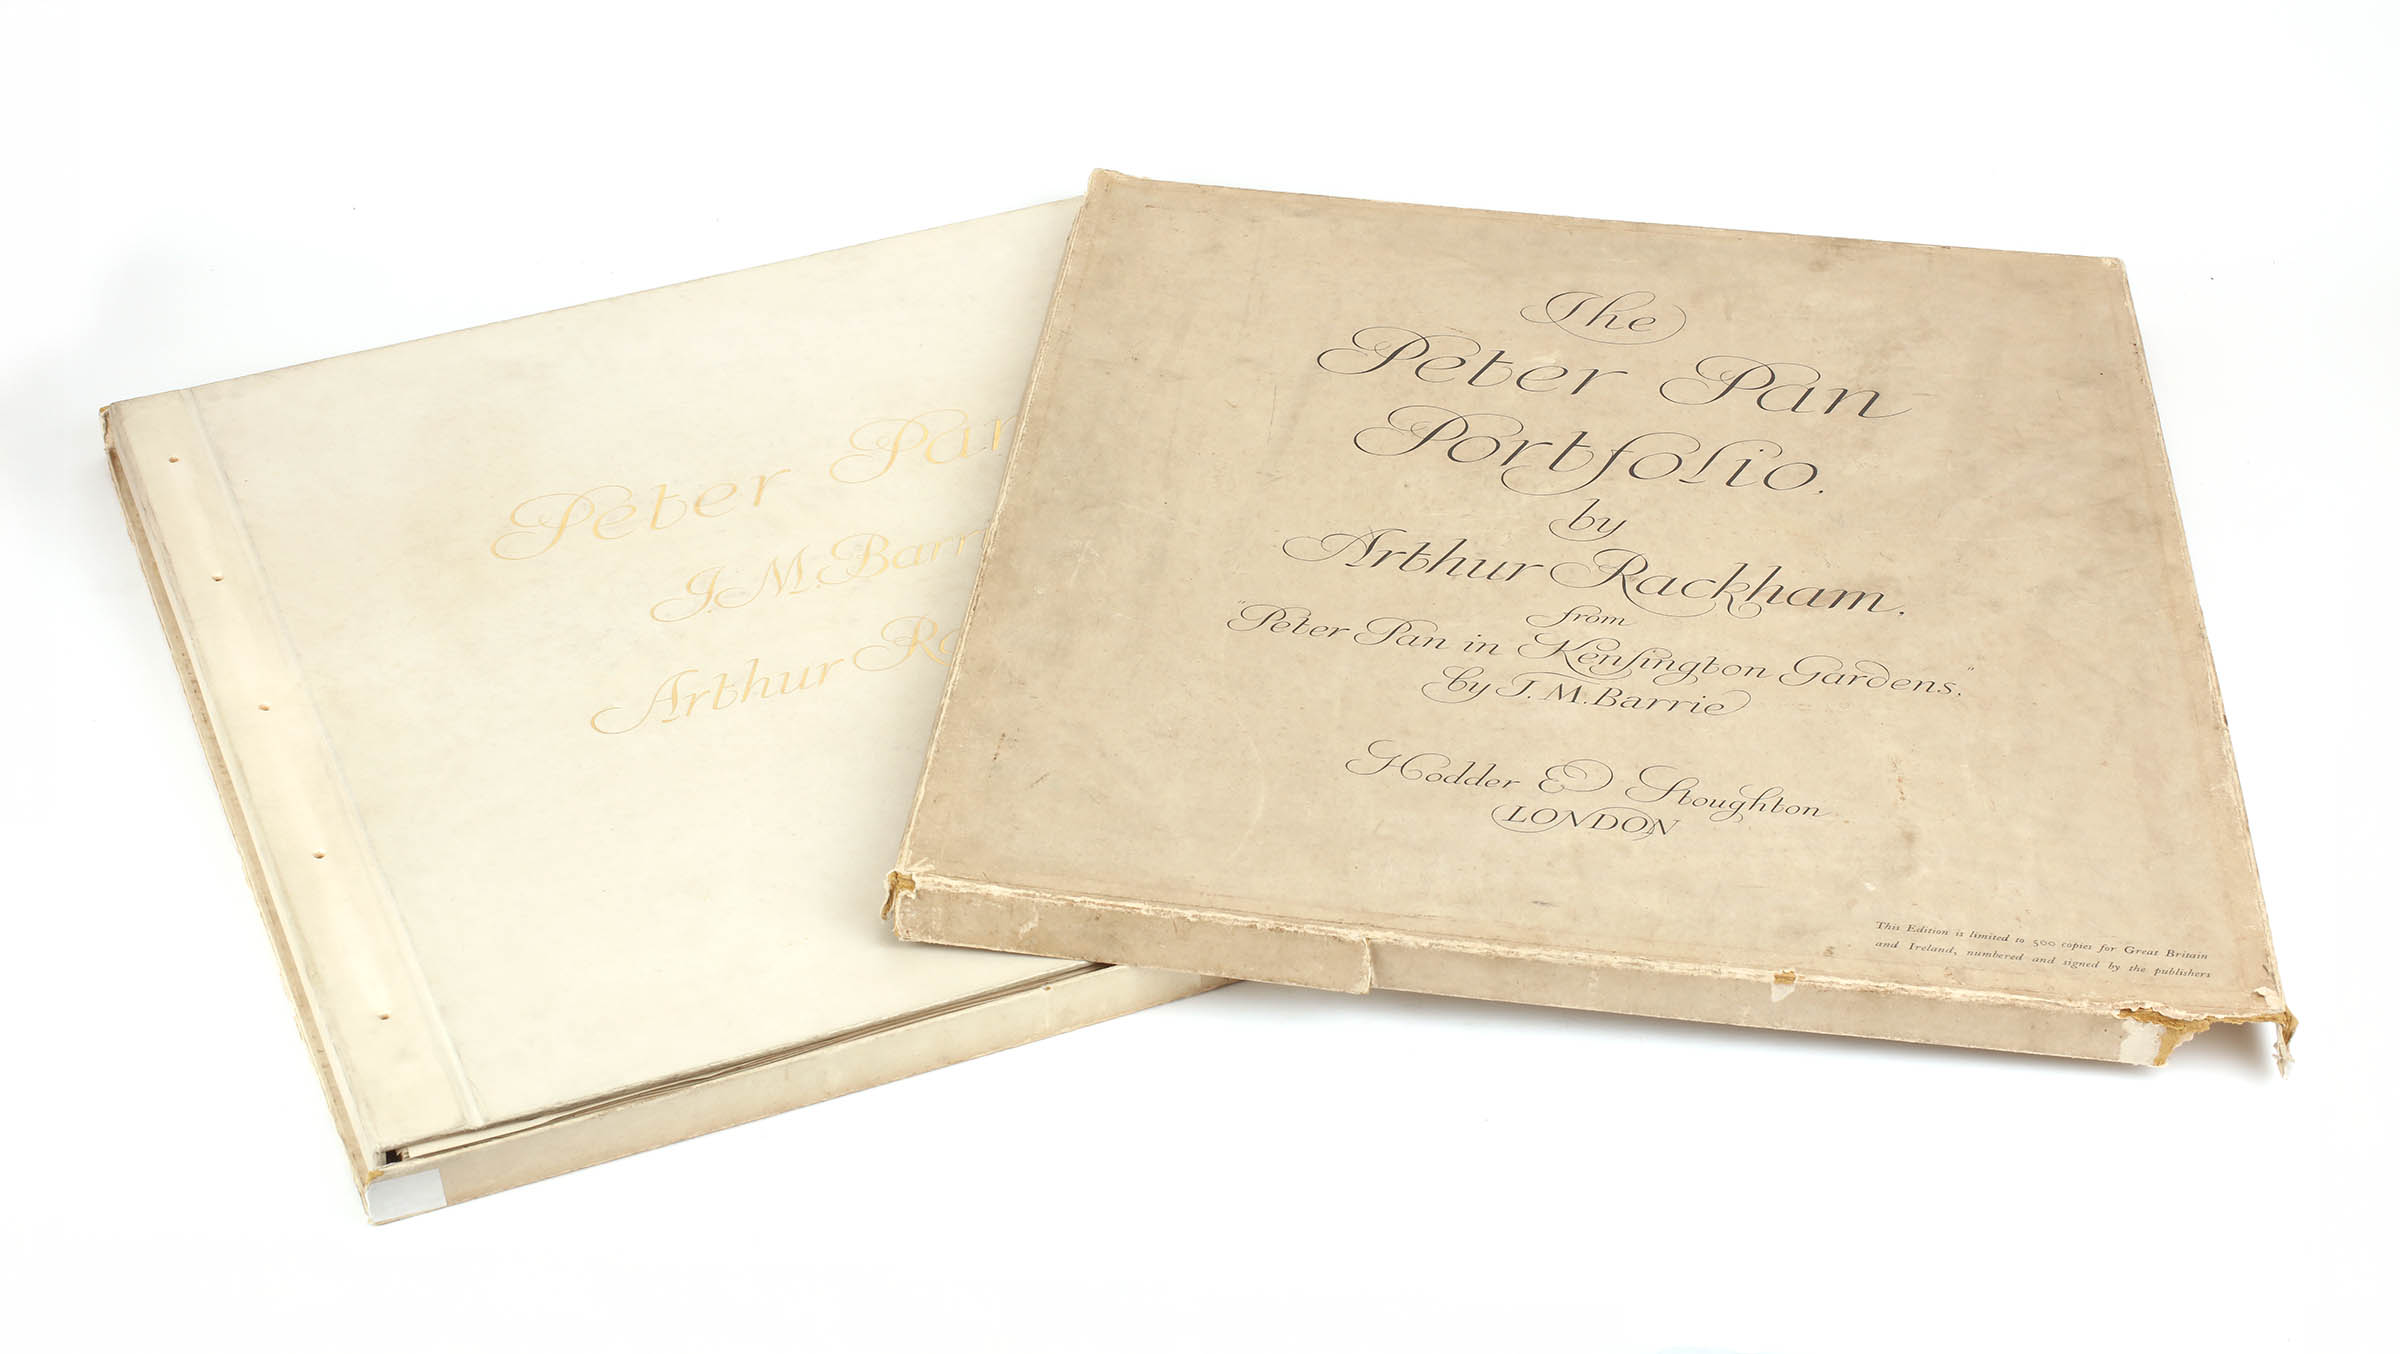 Peter Pan
J. M. Barri
Arthur Ra
The
Peter Pan
Portfolio.
by
Arthur Rackham.
from
"Peter Pan in Kensington Gardens."
by J. M. Barrie
Hodder & Stoughton
LONDON
This Edition is limited to 500 copies for Great Britain
and Ireland, numbered and signed by the publishers